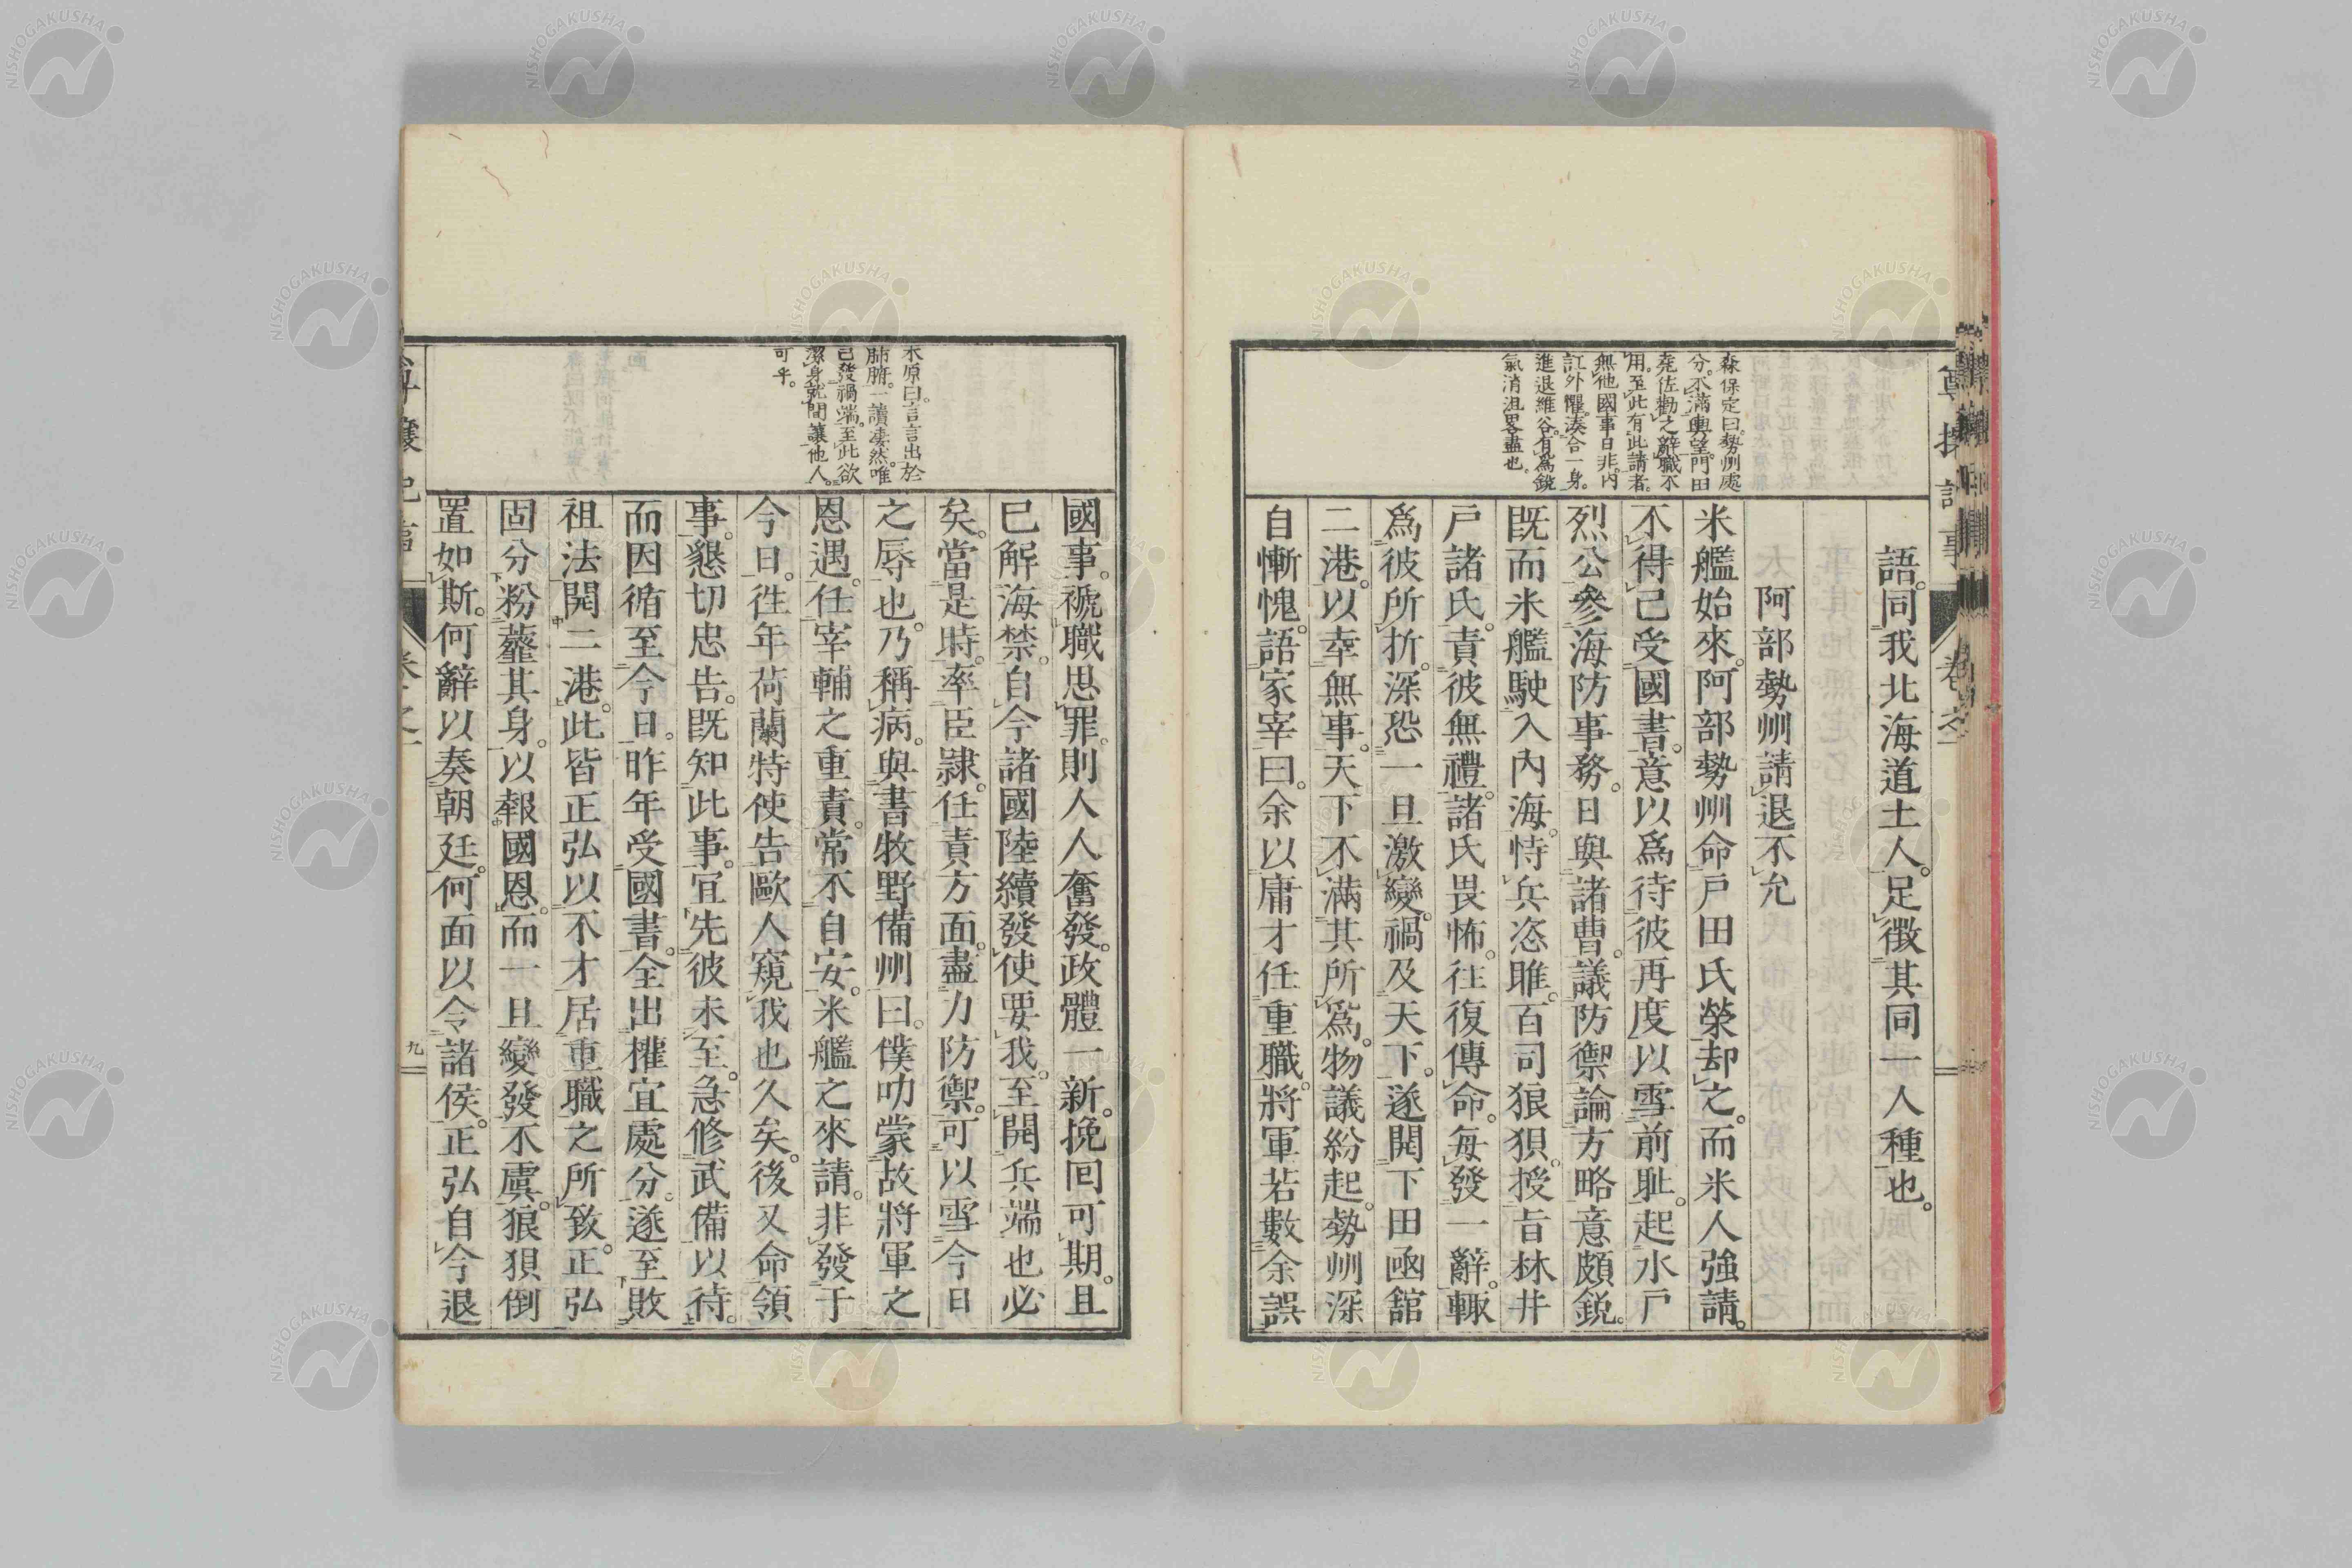 語。同我北海道土人。足徵其同一人種也。
阿部勢州請退不允
米艦始來。阿部勢州命戶田氏榮却之。而米人強請。
不得已受國書。意以爲待彼再度以雪前恥。起水戶
烈公參海防事務。日與諸曹。議防禦論方略意頗銳。
既而米艦駛入內海。恃兵恣睢。百司狼狽。授旨林井
戶諸氏。責彼無禮。諸氏畏怖。往復傳命。每發一辭。輙
爲彼所折。深恐一旦激變。禍及天下。遂開下田凾館
二港。以幸無事。天下不滿其所爲。物議紛起。勢州深
自慚愧。語家宰曰。余以庸才任重職。將軍若數余誤
森保定曰。勢州處
分。不滿輿望。門田
堯佐勸之辭職不
用。至此有此請者。
無他國事日非。內
訌外懼。湊合一身。
進退維谷。有爲銳
氣消沮畧盡也。
國事。褫職思罪。則人人奮發。政體一新。挽回可期。且
已解海禁。自今諸國陸續發使要我。至開兵端也必
矣。當是時。率臣隷。任責方面。盡力防禦。可以雪今日
之辱也。乃稱病。與書牧野備州曰。僕叨蒙故將軍之
恩遇。任宰輔之重責。常不自安。米艦之來請。非發于
今日。徃年荷蘭特使告歐人窺我也久矣。後又命領
事。懇切忠告。既知此事。宜先彼未至。急修武備以待。
而因循至今日。昨年受國書。全出權宜處分。遂至敗
祖法開二港。此皆正弘以不才居重職之所致。正弘
固分粉虀其身。以報國恩。而一旦變發不虞。狼狽倒
置如斯。何辭以奏朝廷。何面以令諸侯。正弘自今退
木原曰。言言出於
肺腑。一讀凄然。唯
已發禍端。至此欲
潔身就間讓他人。
可乎。
九